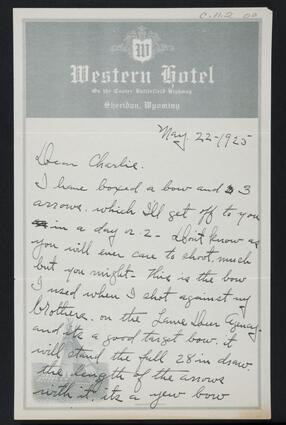 C.11.2 00
W
Western Hotel
On the Custer Battlefield Highway
Sheridan, Wyoming
May. 22-1925
Dear Charlie.
I have boxed a bow and 3
arrows. which I'll get off to you
in a day or 2- Don't know as
you will ever care to shoot, much
but you might- This is the bow
I used when I shot against my
brothers. on the Lame Deer Agency-
and its a good target bow. it
will stand the full 28 in draw.
the length of the arrows
with it. its a yew bow